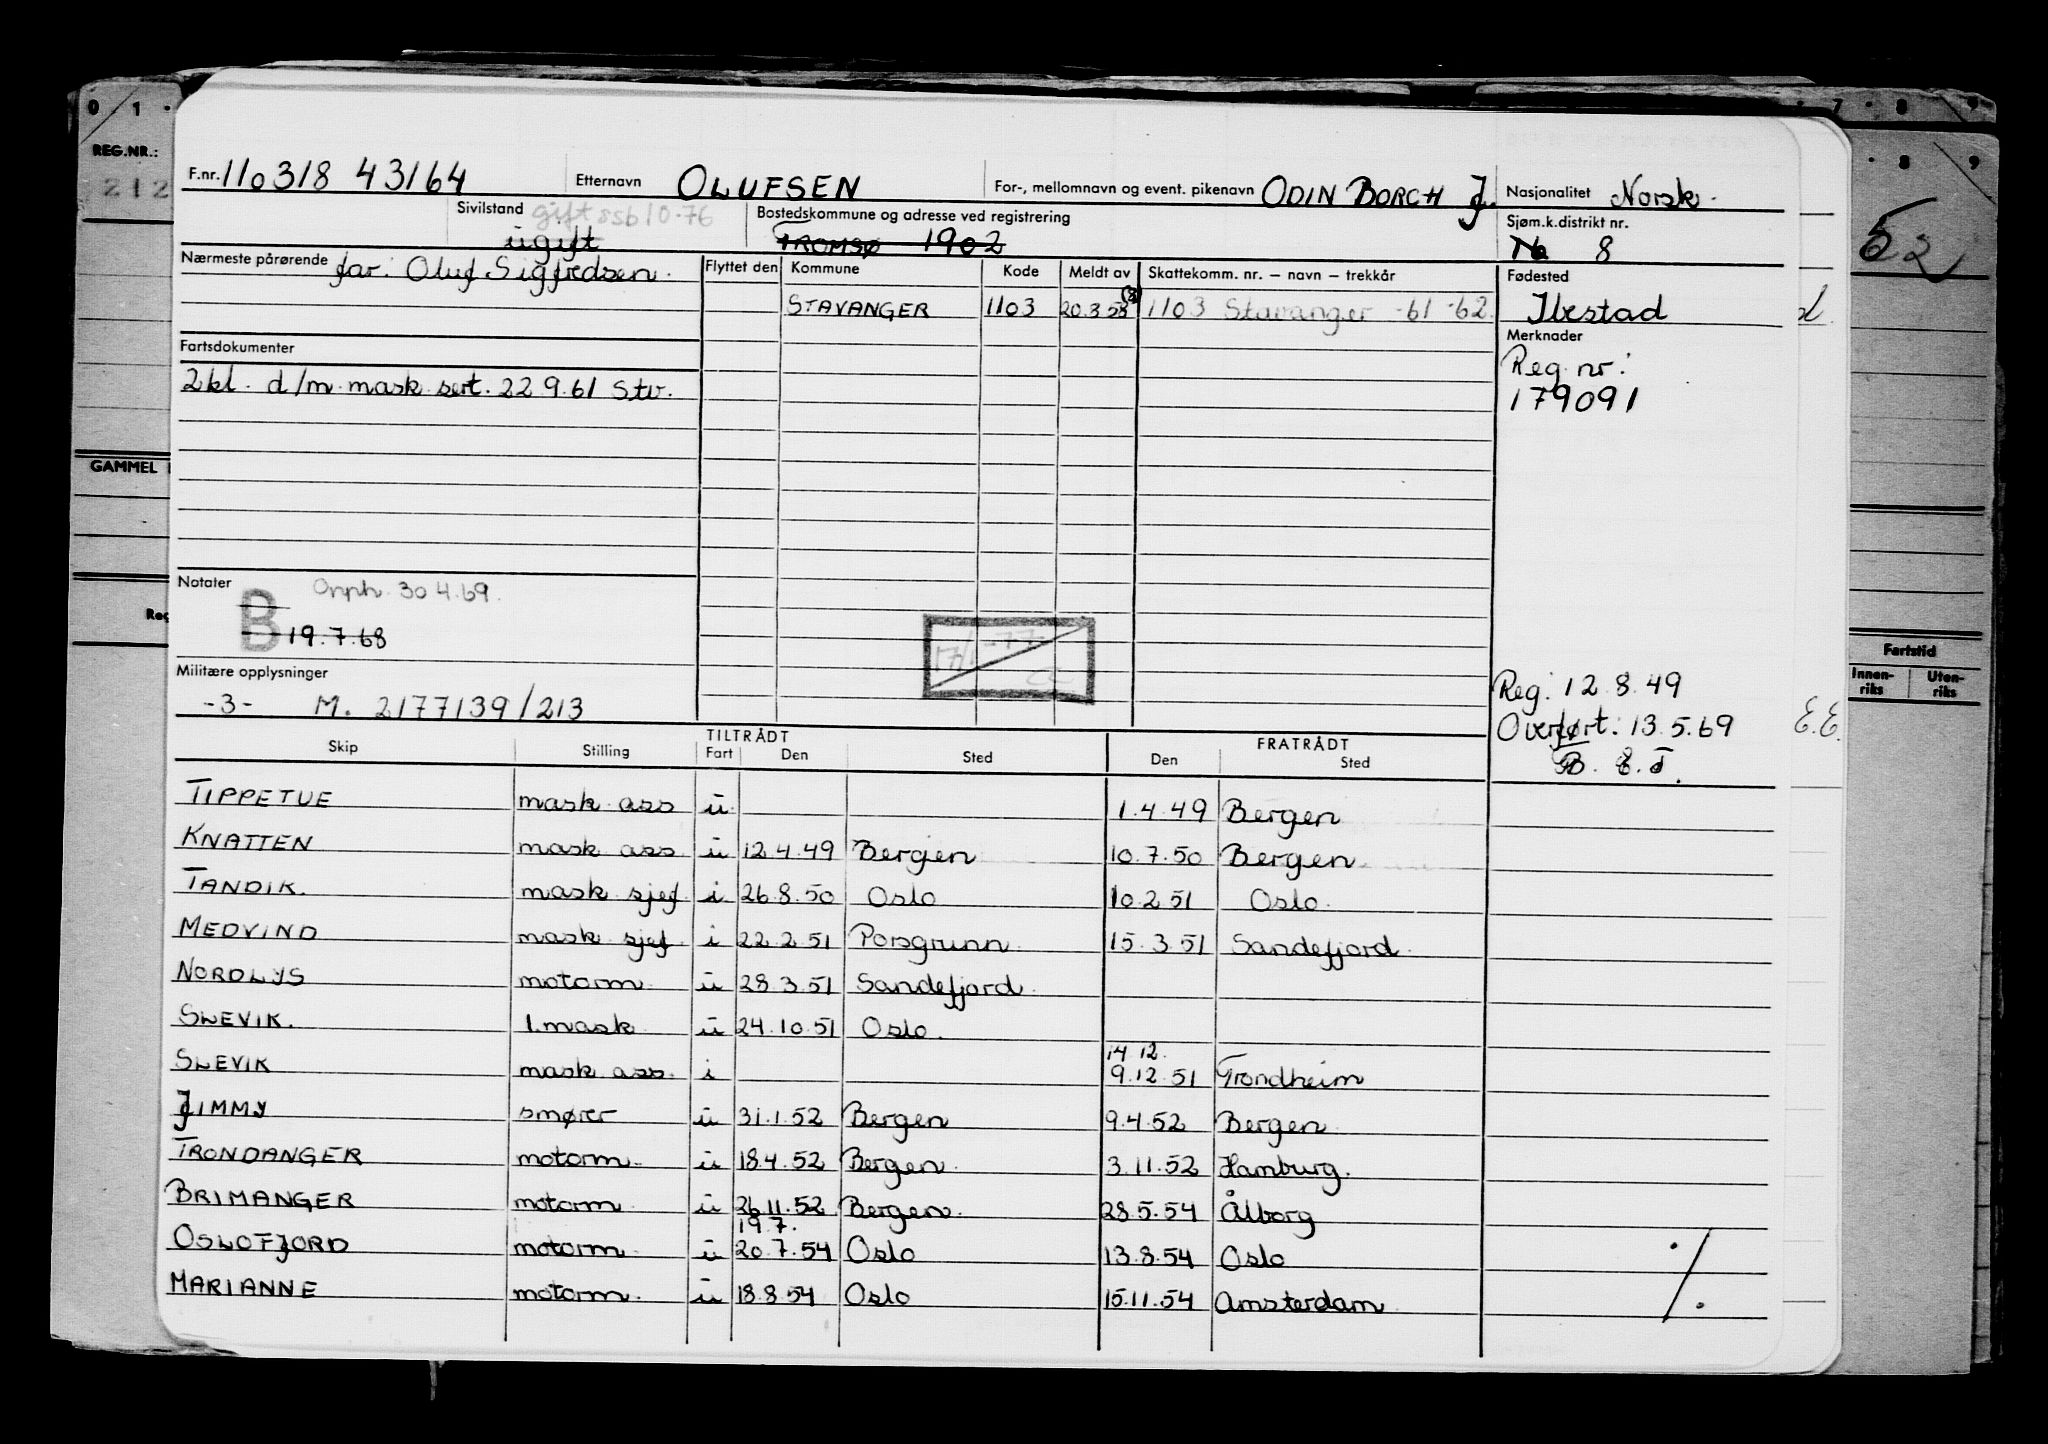 0 1 · · 7 · 8 9
REG.NR.: · 8 9
212
F.nr. 110318 43164 Etternavn OLUFSEN For-, mellomnavn og event. pikenavn ODIN BORCH J. Nasjonalitet Norsk.
Sivilstand gift ssb 10-76 Bostedskommune og adresse ved registrering Sjøm.k.distrikt nr.
ugift TROMSØ 1902 8
52
Nærmeste pårørende far: Oluf Sigfredsen. Flyttet den Kommune Kode Meldt av Skattekomm. nr. – navn – trekkår Fødested
STAVANGER 1103 20.3.58 (8) 1103 Stavanger -61 -62 Ibestad
Fartsdokumenter Merknader
2kl. d/m mask sert. 22 9.61 Stv. Reg. nr:
179091
GAMMEL
Notater
B Opph. 30 4.69.
19.7.68
Reg
17/1-77
Fartstid
Innen-riks Uten-riks
Militære opplysninger
-3- M. 2177139/213
Reg: 12.8.49
Overført: 13.5.69
E.E.
TILTRÅDT FRATRÅDT
Skip Stilling Fart Den Sted Den Sted
TIPPETUE mask ass u 1.4.49 Bergen
KNATTEN mask ass u 12.4.49 Bergen 10.7.50 Bergen
TANDIK. mask sjef i 26.8.50 Oslo 10.2.51 Oslo.
MEDVIND mask sjef i 22.2.51 Porsgrunn 15.3.51 Sandefjord
NORDLYS motorm u 28.3.51 Sandefjord
SLEVIK. 1.mask u 24.10.51 Oslo.
14.12.
SLEVIK mask ass. i 9.12.51 Trondheim
JIMMY smører u 31.1.52 Bergen 9.4.52 Bergen
TRONDANGER motorm. u 18.4.52 Bergen. 3.11.52 Hamburg.
BRIMANGER motorm u 26.11.52 Bergen. 28.5.54 Ålborg
19.7.
OSLOFJORD motorm u 20.7.54 Oslo 13.8.54 Oslo
MARIANNE motorm. u 18.8.54 Oslo 15.11.54 Amsterdam
./.